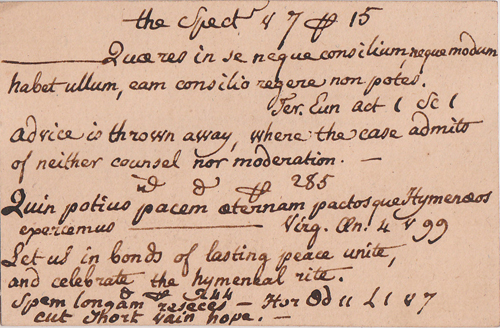 the Spectr v 7 p 15
Quæ res in se neque consilium, neque modum
habet ullum, eam consilio regere non potes.
Ter. Eun act 1 Sc 1
advice is thrown away, where the case admits
of neither counsel nor moderation. —
p 285
Quin potius pacem æternam pactosque Hymenæos
exercemus Virg. Æn. 4 v 99
Let us in bonds of lasting peace unite,
and celebrate the hymeneal rite.
p 244
Spem longam reseces — Hor Od 11 L 1 v 7
cut short vain hope. —